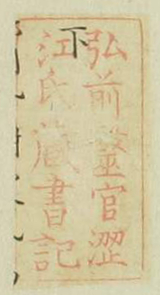 弘前醫官澀
江氏蔵書記
下